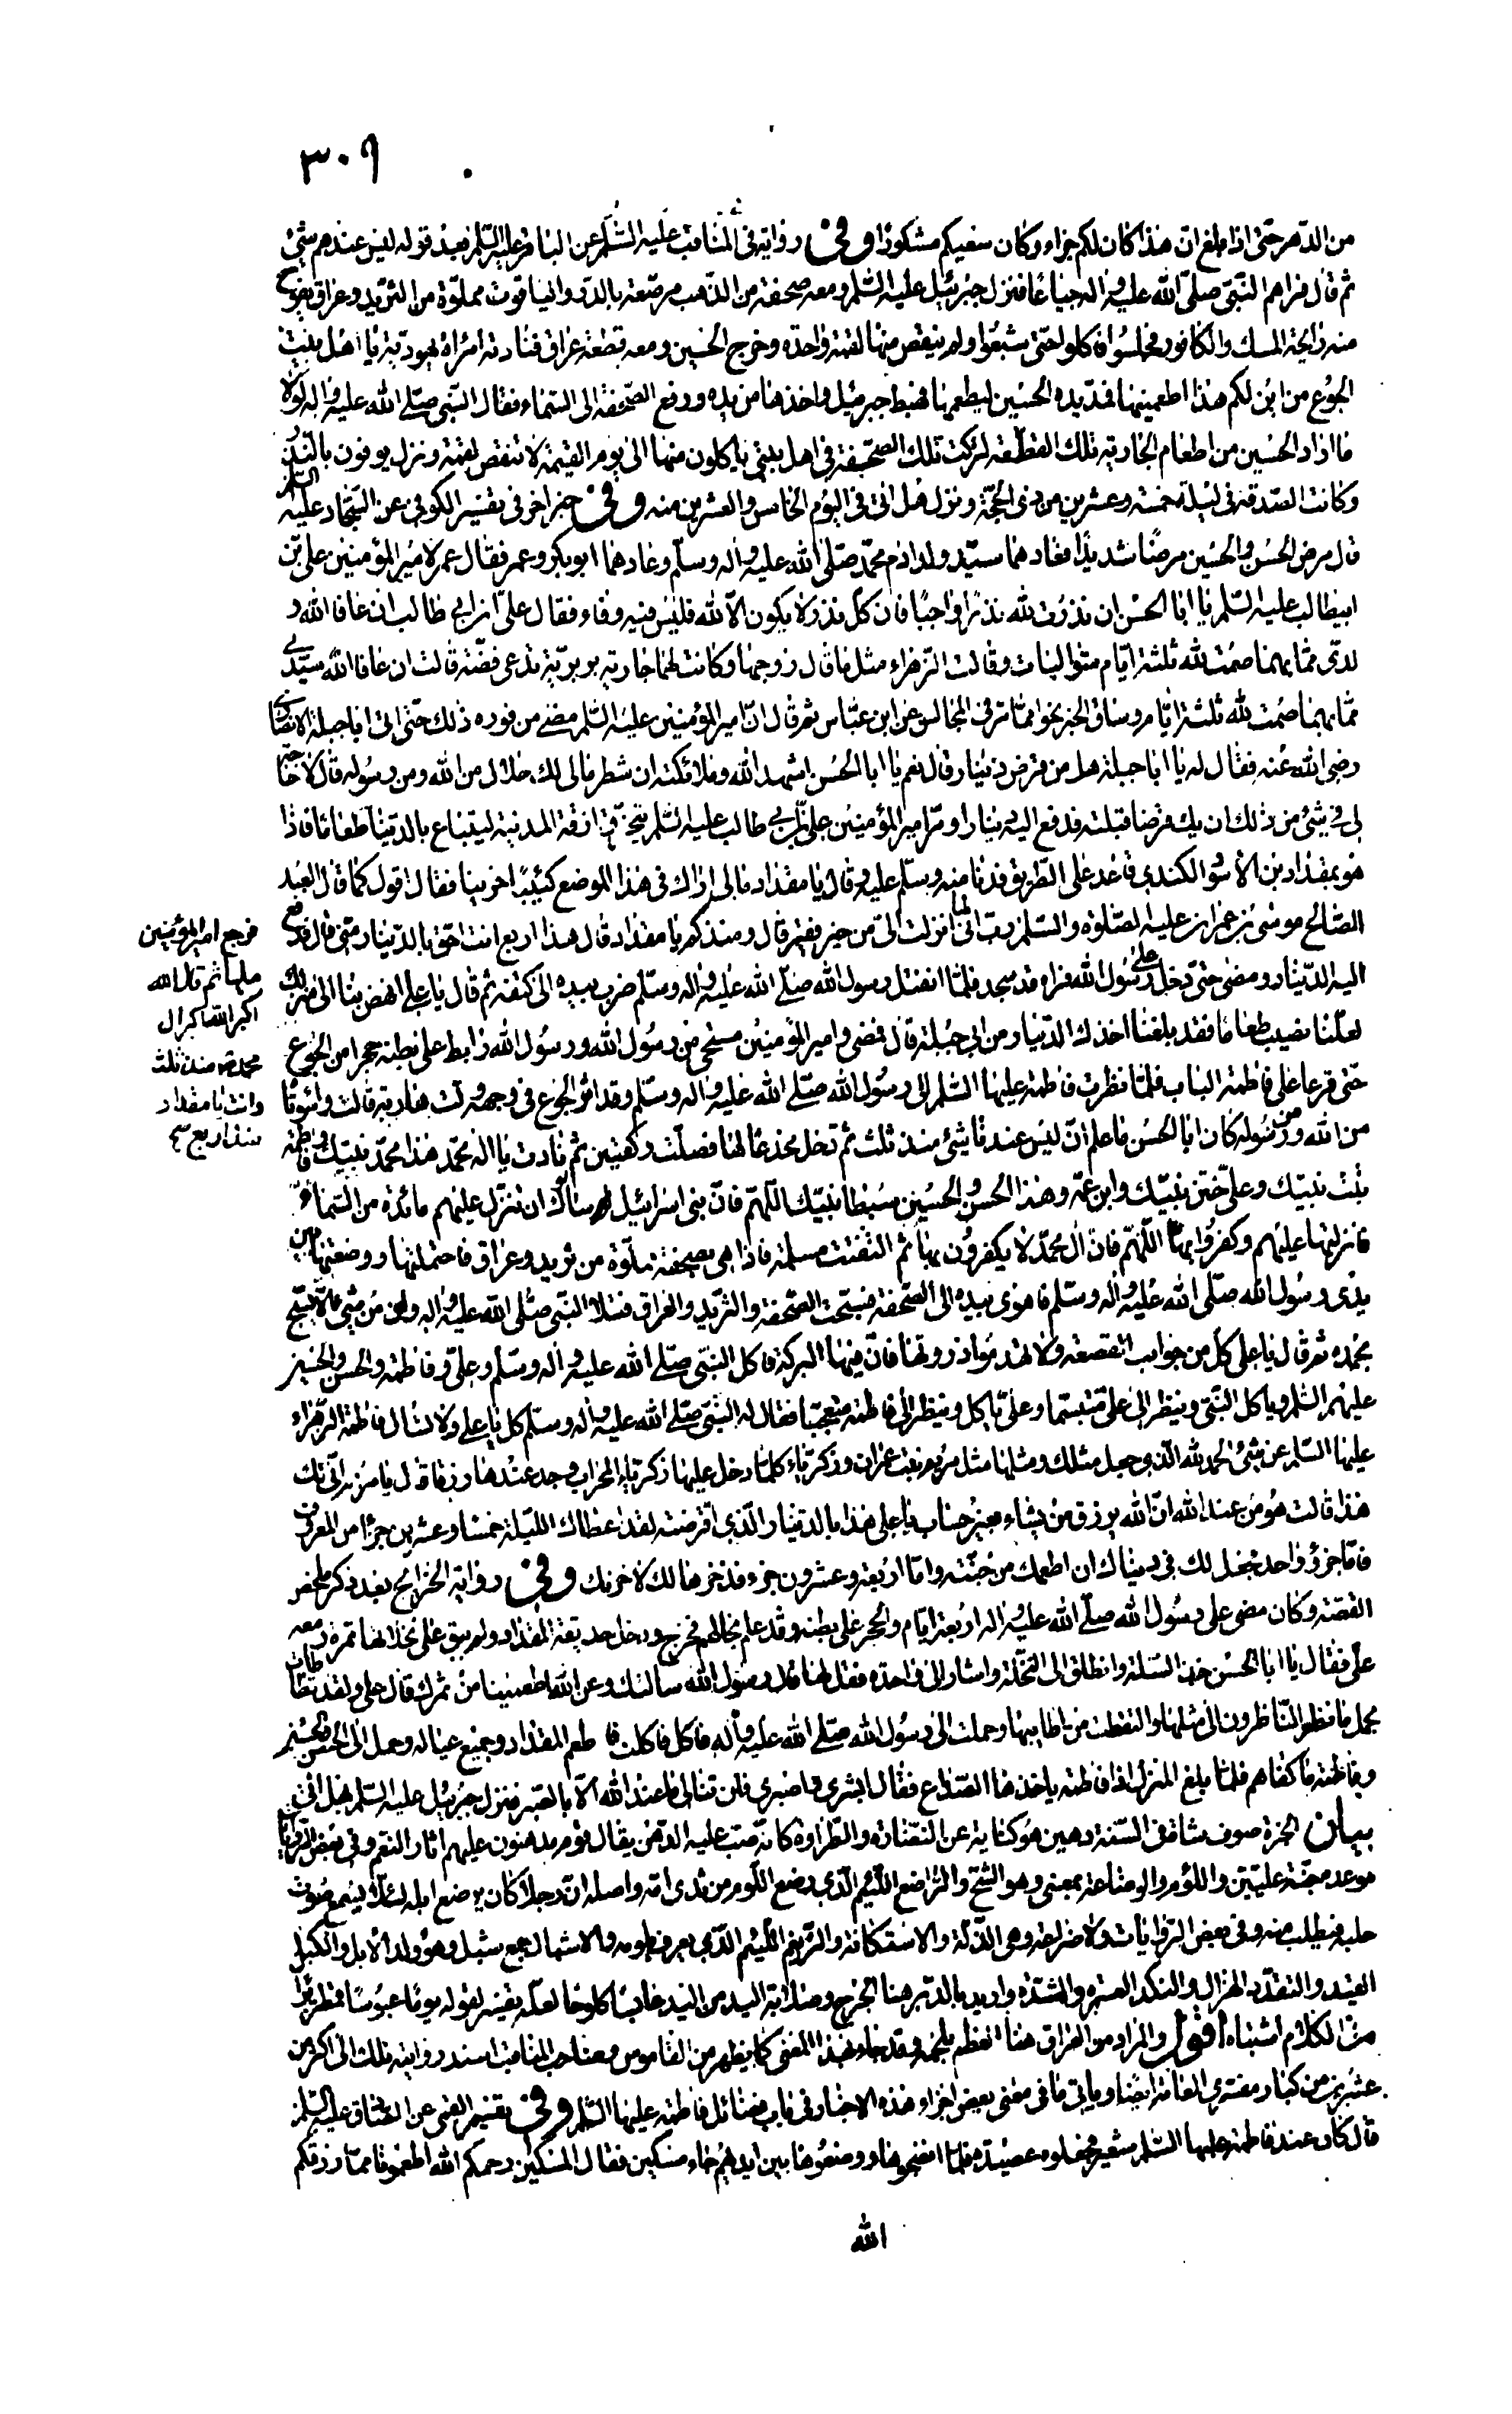 ٣٠٩
من الدّهر حتّى اذا بلغ انّ هذا كان لكم جزاء وكان سعيكم مشكورا وفى رواية فى المناقب عليه السّلم عن الباقر عليه السّلم فبعد قوله ليس عندهم شئ
ثم قال فراهم النّبىّ صلّى الله عليه واله جياعًا فنزل جبرئيل عليه السّلم ومعه صحفة من الذّهب مرصّعة بالدّرّ والياقوت مملوّة من الثّريد وعراق يفوح
منه رائحة المسك والكافور فجلسوا فاكلوا حتّى شبعوا ولم ينقص منها لقمة واحدة وخرج الحسين ومعه قطعة عراق فنادته امرأة يهوديّة يا اهل بيت
الجوع من اين لكم هذا اطعمينها فمدّ يده الحسين ليطعمها فهبط جبرئيل واخذها من يده ورفع الصّحفة الى السّماء فقال النّبى صلّى الله عليه واله لولا
ما اراد الحسين من اطعام الجارية تلك القطعة لتركت تلك الصّحفة فى اهل بيتى ياكلون منها الى يوم القيمة لا تنقص لقمة ونزل يوفون بالنّذر
وكانت الصّدقة فى ليلة خمسة وعشرين من ذى الحجّة ونزل هل اتى فى اليوم الخامس والعشرين منه وفى خبر اخر فى تفسير الكوفى عن السّجّاد عليه السّلم
قال مرض الحسن والحسين مرضًا شديدًا فعادهما سيّد ولد ادم محمّد صلّى الله عليه واله وسلّم وعادهما ابوبكر وعمر فقال عمر لامير المؤمنين على بن
ابيطالب عليه السّلم يا ابا الحسن ان نذرت لله نذرًا واجبًا فان كلّ نذر لا يكون الاّ لله فليس فيه وفاء فقال علىّ بن ابى طالب ان عافا الله و
لدىّ ممّا بهما صمت لله ثلثة ايّام متواليات وقالت الزّهراء مثل ما قال زوجها وكانت لهما جارية بربريّة تدعى فضّة قالت ان عافا الله سيّدىّ
ممّا بهما صمت لله ثلثة ايّام وساق الخبر نحوا ممّا مرّ فى المجالس عن ابن عبّاس ثم قال انّ امير المؤمنين عليه السّلم مضى من فوره ذلك حتّى اتى ابا جبلة الانصارى
رضى الله عنه فقال له يا ابا جبلة هل من قرض دينار قال نعم يا ابا الحسن اشهد الله وملائكته ان شطر مالى لك حلال من الله ومن رسوله قال لا حاجة
لى فى شئ من ذلك ان يك قرضا قبلته فدفع اليه دينارا ومرّ امير المؤمنين على بن ابى طالب عليه السّلم يتخرّق ازقة المدينة ليبتاع بالدّينار طعاما فاذا
هو بمقداد بن الاسود الكندى قاعد على الطّريق فدنا منه وسلّم عليه وقال يا مقداد مالى اراك فى هذا الموضع كئيبا حزينا فقال اقول كما قال العبد
الصّالح موسى بن عمران عليه الصّلوة والسّلم ربّ انّى لما انزلت الىّ من خير فقير قال ومنذ كم يا مقداد قال هذا اربع انت احق بالدّينار منّى قال فدفع
اليه الدّينار ومضى حتّى دخل على رسول الله فراه قد سجد فلمّا انفتل رسول الله صلّى الله عليه واله وسلّم ضرب بيده الى كتفه ثم قال يا على انهض بنا الى منزلك
لعلّنا نصيب طعاما فقد بلغنا اخذك الدّينار من ابى جبلة قال فمضى وامير المؤمنين مستحى من رسول الله ورسول الله رابط على بطنه حجرا من الجوع
حتّى قرعا على فاطمة الباب فلمّا نظرت فاطمة عليها السّلم الى رسول الله صلّى الله عليه واله وسلّم وقد اثّر الجوع فى وجهه ولّت هاربة قالت واسوأتا
من الله ومن رسوله كان ابا الحسن ما علم ان ليس عندنا شئ منذ ثلث ثم تدخل مخدعًا لها فصلّت ركعتين ثم نادت يا اله محمّد هذا محمّد نبيّك وفاطمة
بنت نبيّك وعلىّ ختن نبيّك وابن عمّه وهذا الحسن والحسين سبطا نبيّك اللّهمّ فانّ بنى اسرائيل سالوك ان تنزّل عليهم مائدة من السّماء
فانزلتها عليهم وكفروا بها اللّهمّ فانّ ال محمّد لا يكفرون بها ثم التفتت مسلمة فاذا هى بصحفة مملوّة من ثريد وعراق فاحتملتها ووضعتها بين
يدى رسول الله صلّى الله عليه واله وسلّم فاهوى بيده الى الصّحفة فسبّحت الصّحفة والثّريد والعراق فتلا النّبى صلّى الله عليه واله وان من شئ الاّ يسبّح
بحمده ثم قال يا على كل من جوانب القصعة ولا تهدموا ذروتها فانّ فيها البركة فاكل النّبى صلّى الله عليه واله وسلّم وعلىّ وفاطمة والحسن والحسين
عليهم السّلم وياكل النّبى وينظر الى علىّ متبسّما وعلىّ ياكل وينظر الى فاطمة متعجّبا فقال له النّبى صلّى الله عليه واله وسلّم كل يا على ولا تسال فاطمة الزّهراء
عليها السّلم عن شئ الحمد لله الّذى جعل مثلك ومثلها مثل مريم بنت عمران وزكريّاء كلّما دخل عليها زكريّاء المحراب وجد عندها رزقا قال يا مريم انّى لك
هذا قالت هو من عند الله انّ الله يرزق من يشاء بغير حساب يا على هذا بالدّينار الّذى اقرضته لقد اعطاك اللّيلة خمسا وعشرين جزءا من المعروف
فامّا جزؤ واحد فجعل لك فى دنياك ان اطعمك من جنّته وامّا اربعة وعشرون جزء قد ذخرها لك لاخرتك وفى رواية الخرائج بعد ذكر ملخص
القصّة وكان مضى على رسول الله صلّى الله عليه واله اربعة ايّام والحجر على بطنه وقد علم بحالهم فخرج ودخل حديقة المقداد ولم يبق على نخلاتها تمرة ومعه
علىّ فقال يا ابا الحسن خذ السّلة وانطلق الى النّخلة واشار الى واحدة فقل لها قال رسول الله سالتك عن الله اطعمينا من ثمرك قال على ولقد تطأطأت
بحمل ما نظر النّاظرون الى مثلها والتقطت من اطايبها وحملت الى رسول الله صلّى الله عليه واله فاكل فاكلت فاطعم المقداد وجميع عياله وحمل الى الحسن والحسين
وفاطمة ما كفاهم فلمّا بلغ المنزل اذا فاطمة ياخذها الصّداع فقال ابشرى واصبرى فلن تنالى ما عند الله الاّ بالصّبر فنزل جبرئيل عليه السّلم بهل اتى
بيان الجزة صوف شاة فى السّنة ودهين هو كناية عن النّضارة والطّراوة كانّه صبّ عليه الدّهن يقال قوم مدهنون عليهم اثار النّعم وفى بعض الرّوايات
موعد جنّة علّيّين واللّؤم والوضاعة بمعنى وهو الشّحّ والرّاضع اللّئيم الّذى رضع اللّوم من ثدى امّه واصله انّ رجلا كان يرضع ابله لئلاّ يسمع صوت
حلبه فيطلب منه وفى بعض الرّوايات ولا ضراعة وهى الذّلّة والاستكانة والزّنيم اللّئيم الّذى يعرف بلومه والاشبال جمع شبل وهو ولد الاسد والكبل
القيد والتقدّد الهزال والنكد العسرة والشدّة واريد بالدّبر هنا الجرح
من الكلام اشتباه اقول والمراد من العراق هنا العظم بلحمه وقد جاء بهذا المعنى كما يظهر من القاموس وصاحب المناقب اسند رواية تلك الى اكثر من
عشرين من كبار مفسّرى العامّة ايضا وياتى ما فى معنى بعض اجزاء هذه الاخبار فى باب فضائل فاطمة عليها السّلم وفى تفسير القمى عن الصّادق عليه السّلم
قال كان عند فاطمة عليها السّلم شعير فجعلوه عصيدة فلمّا انضجوها ووضعوها بين ايديهم جاء مسكين فقال المسكين رحمكم الله اطعمونا ممّا رزقكم
الله
فرجع امير المؤمنين
مليا ثم قال الله
اكبر الله اكبر ال
محمّد منذ ثلث
وانت يا مقداد
منذ اربع صح